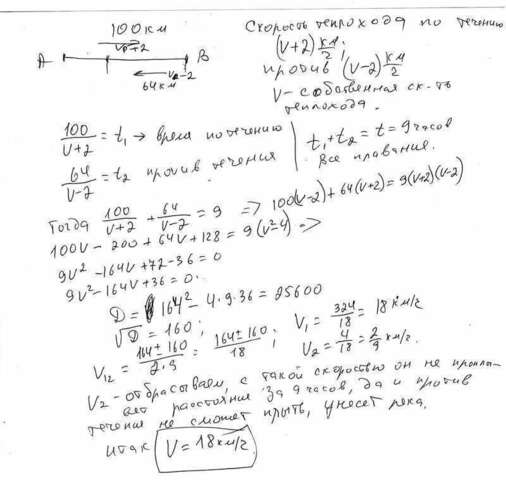 100 км
V+2
A B
V-2
64 км
Скорость теплохода по течению
(V+2) км/г,
против (V-2) км/г
V - собственная ск-ть
теплохода.
100/(V+2) = t₁ → время по течению
64/(V-2) = t₂ против течения
t₁+t₂ = t = 9 часов
все плавание.
Тогда 100/(V+2) + 64/(V-2) = 9 => 100(V-2)+64(V+2)=9(V+2)(V-2)
100V - 200 + 64V + 128 = 9(V²-4) =>
9V² - 164V + 72 - 36 = 0
9V² - 164V + 36 = 0.
D = 164² - 4·9·36 = 25600
√D = 160;
V₁₂ = (164 ± 160)/(2·9) = (164 ± 160)/18;
V₁ = 324/18 = 18 км/г
V₂ = 4/18 = 2/9 км/г.
V₂ - отбрасываем, с такой скоростью он не проплы-
вет расстояние за 9 часов, да и против
течения не сможет плыть, унесет река.
итак V = 18 км/г.